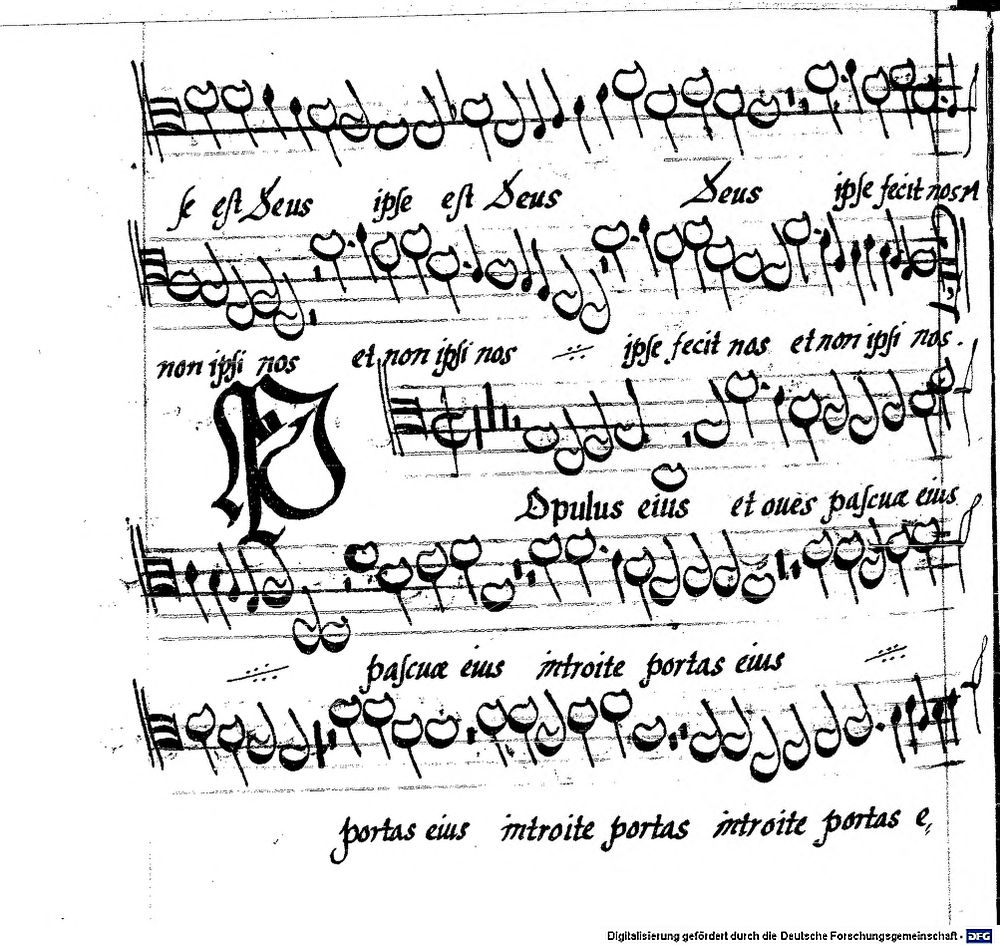 se est Deus ipse est Deus Deus ipse fecit nos et
non ipsi nos et non ipsi nos ipse fecit nos et non ipsi nos.
POpulus eius et oues pascuæ eius
pascuæ eius introite portas eius
portas eius introite portas introite portas e,
Digitalisierung gefördert durch die Deutsche Forschungsgemeinschaft - DFG